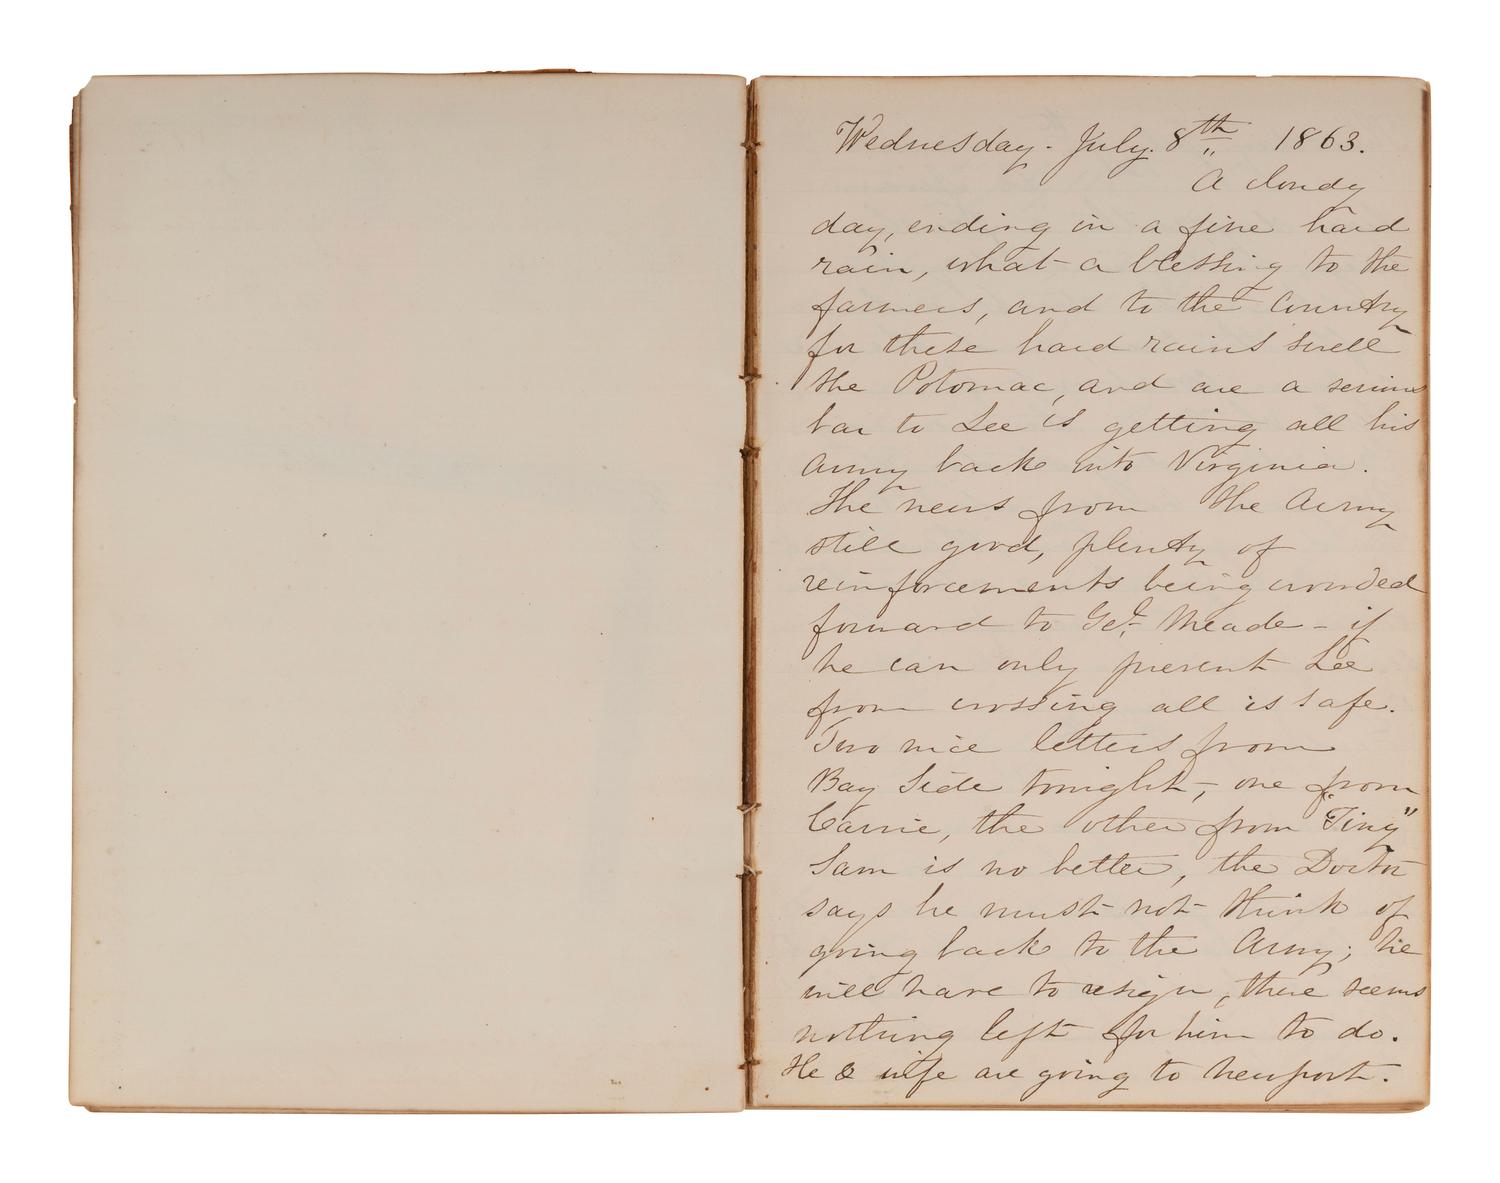 Wednesday. July. 8th 1863.
A cloudy
day, ending in a fine hard
rain, what a blessing to the
farmers, and to the Country
for these hard rains swell
the Potomac, and are a serious
bar to Lee is getting all his
army back into Virginia.
The news from the Army
still good, plenty of
reinforcements being crowded
forward to Gel. Meade - if
he can only prevent Lee
from crossing all is safe.
Two nice letters from
Bay Side tonight, one from
Carrie, the other from "Tiny"
Sam is no better, the Doctor
says he must not think of
going back to the Army; he
will have to resign, there seems
nothing left for him to do.
He & wife are going to Newport.